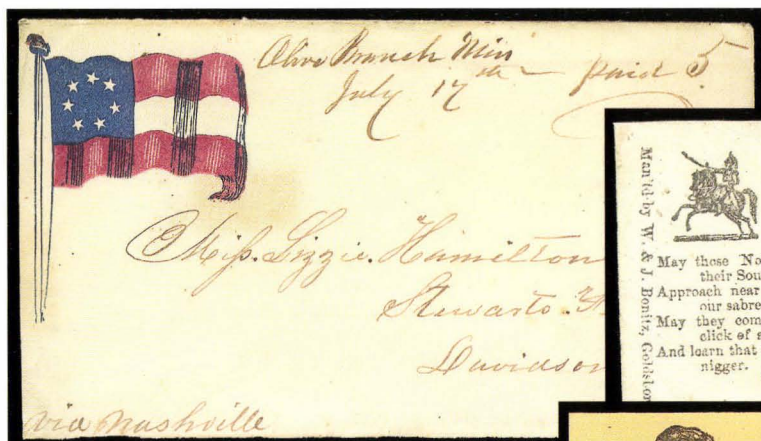 Olive Branch Miss
July 17th paid 5
Miss. Lizzie. Hamilton
Stewarts
Davidson
via Nashville
Man'fd by W. & J. Bonitz, Goldsboro
May those No
their Sou
Approach near
our sabre
May they com
click of
And learn that
nigger.